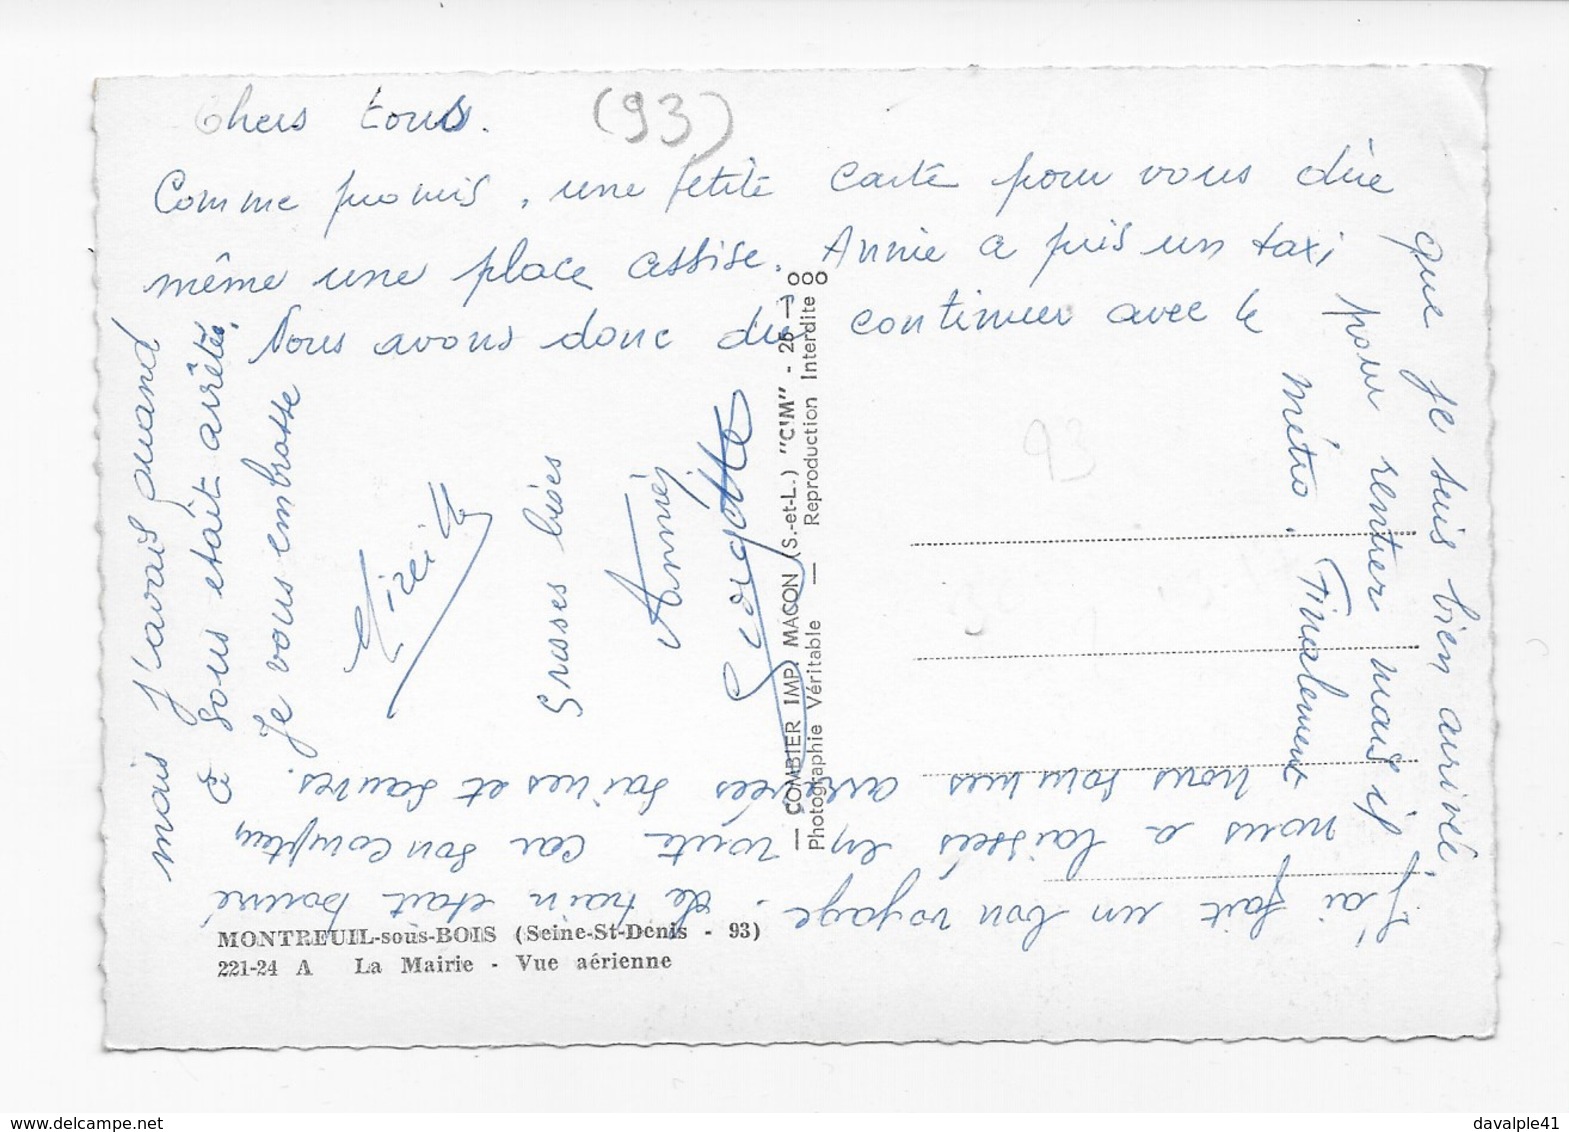 Chers tous.
(93)
Comme promis, une petite carte pour vous dire
que je suis bien arrivée.
J'ai fait un bon voyage. Le train était bourré
mais j'avais quand
même une place assise. Annie a pris un taxi
pour rentrer mais il
nous a laissées en route car son compteur
de sous était arrêtée.
Nous avons donc du continuer avec le
métro. Finalement
nous sommes arrivées saines et sauves.
Je vous embrasse
Mireille
Grosses bises
Annie
Georgette
93
— COMBIER IMP. MACON (S.-et-L.) "CIM" - 25 —
Photographie Véritable — Reproduction Interdite
MONTREUIL-sous-BOIS (Seine-St-Denis - 93)
221-24 A La Mairie - Vue aérienne
davalple41